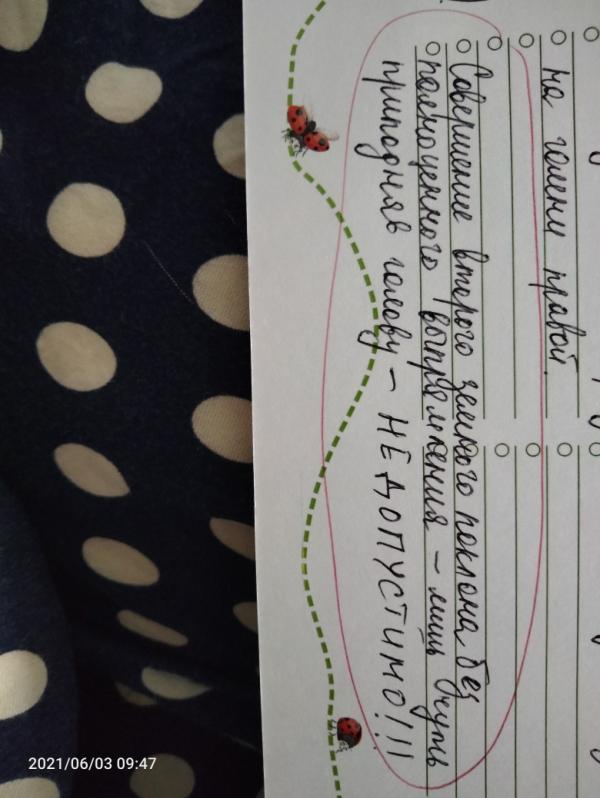 на голени правой.
Совершение второго земного поклона без
полноценного выпрямления – лишь чуть
приподняв голову – НЕДОПУСТИМО!!!
2021/06/03 09:47